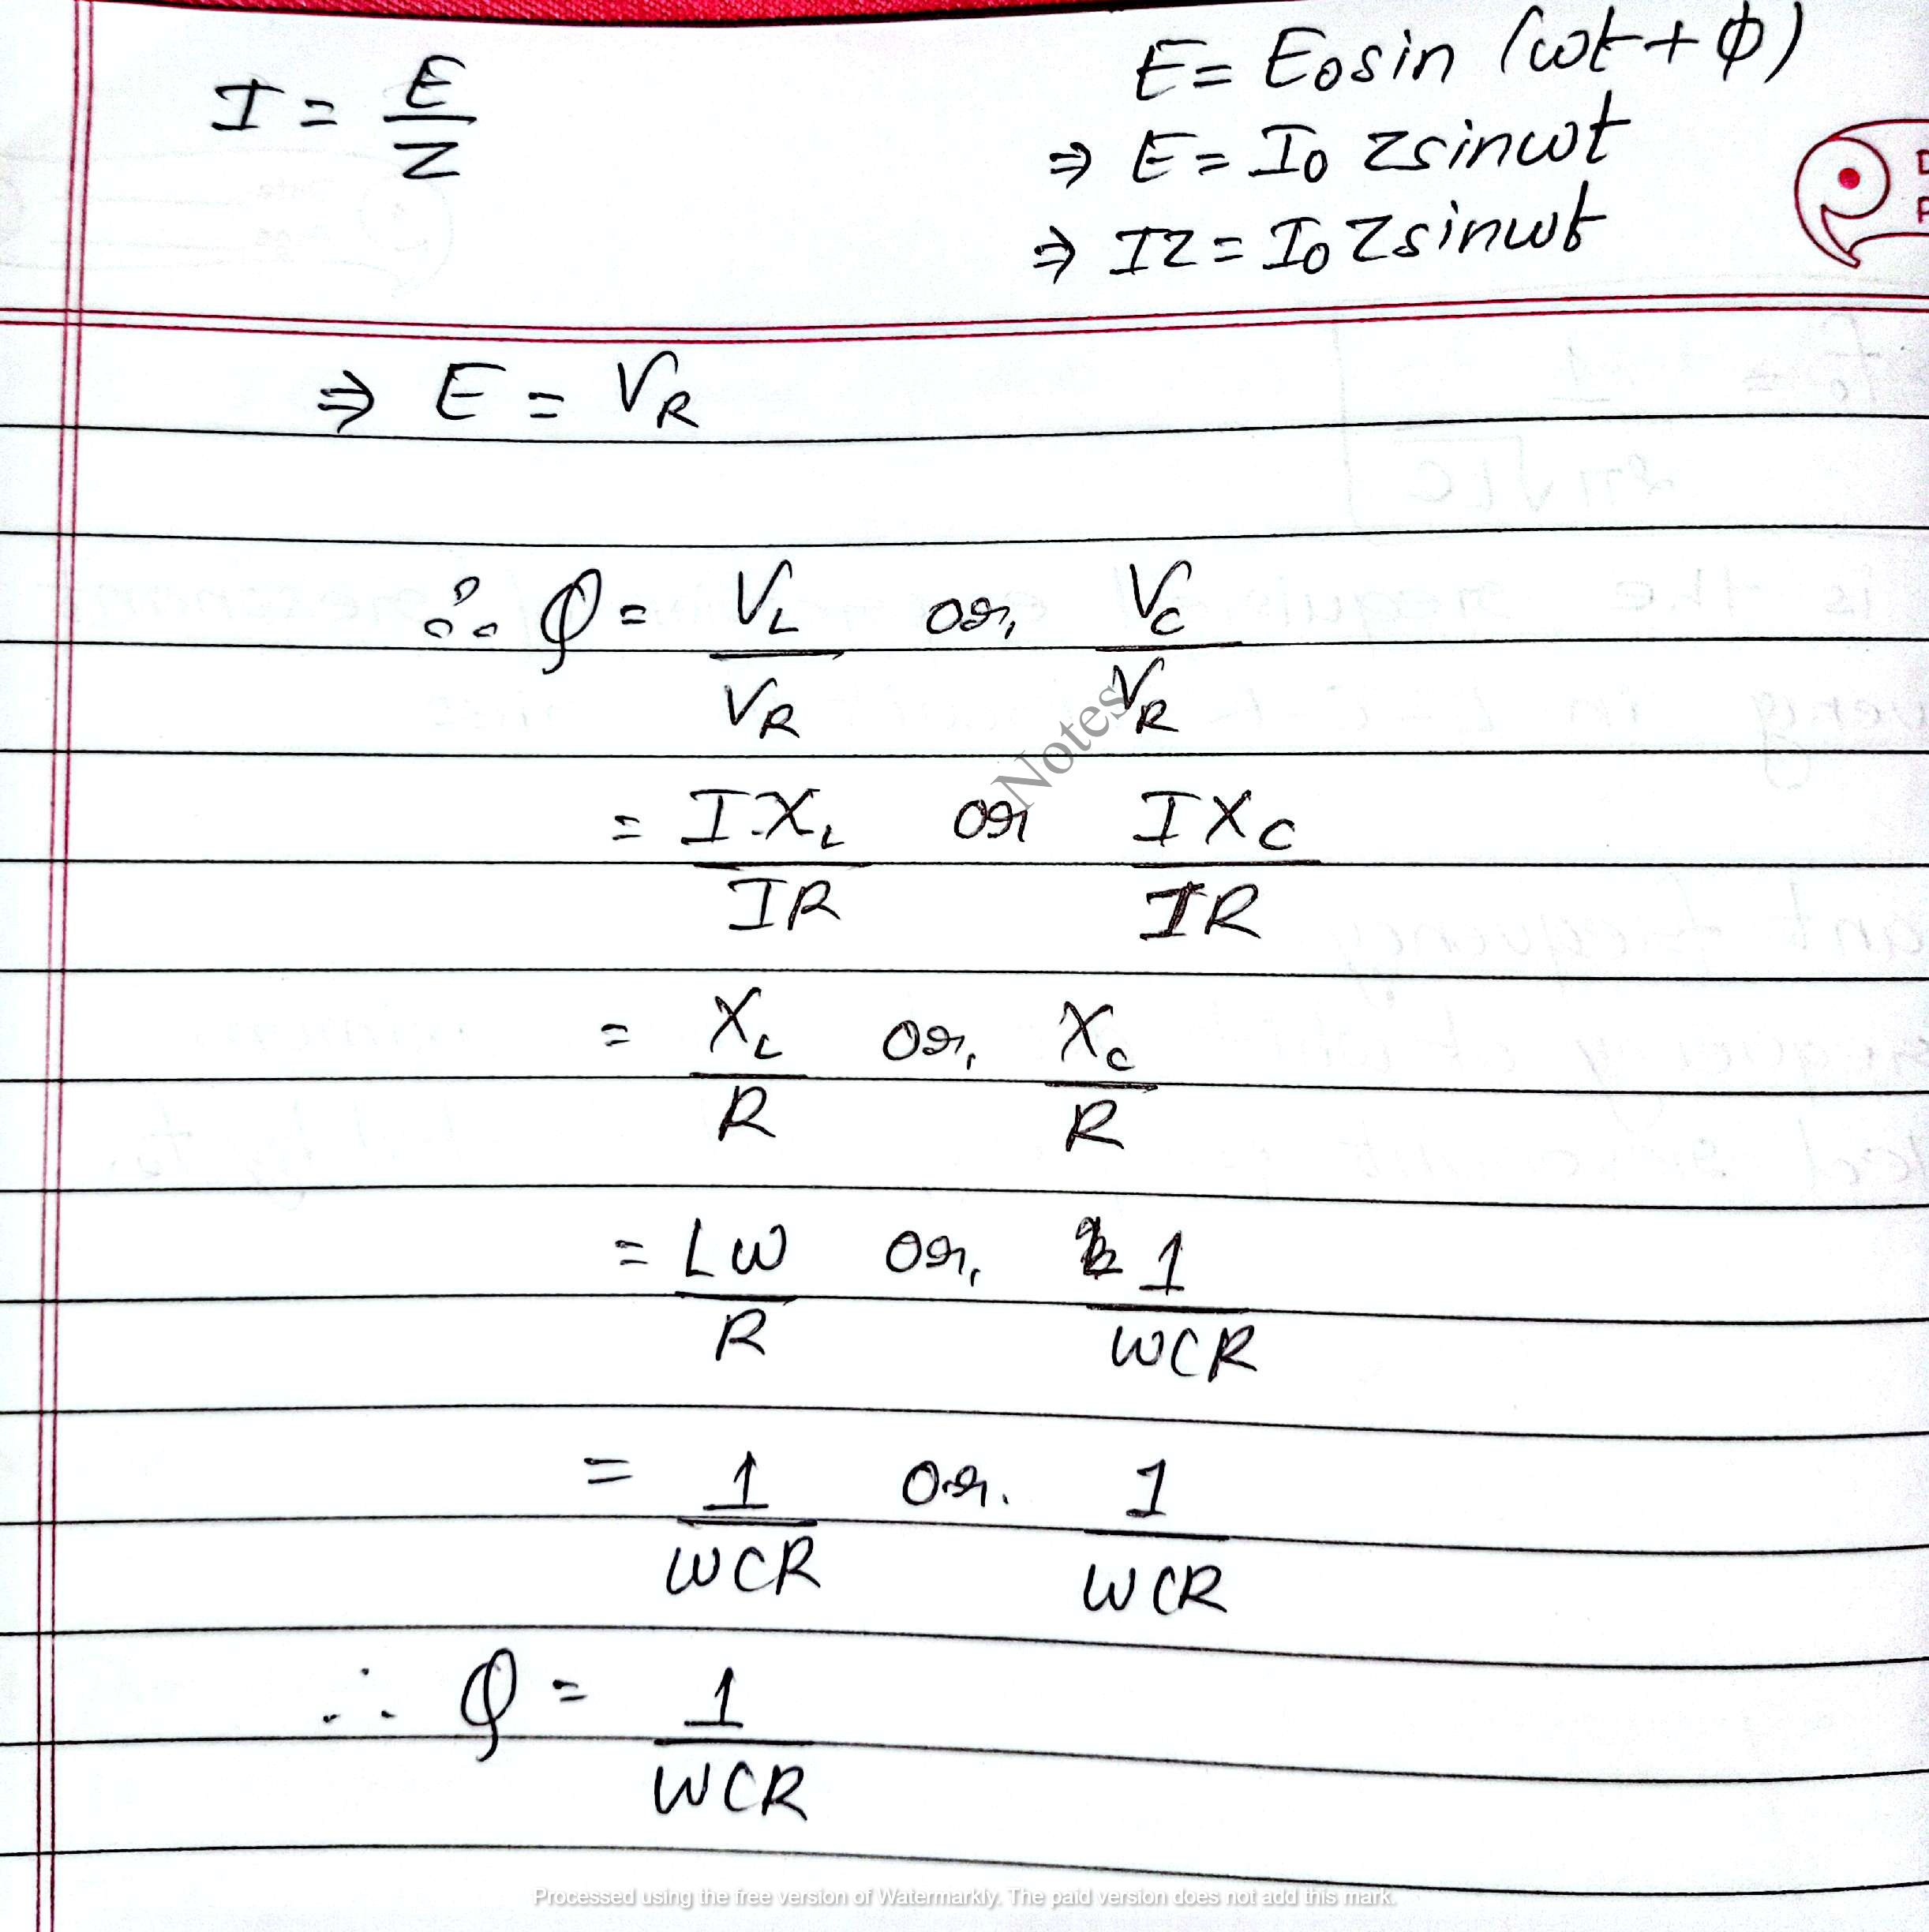 I = E/Z
E = E₀ sin (ωt + φ)
⇒ E = I₀ Z sinωt
⇒ IZ = I₀ Z sinωt
⇒ E = V_R
∴ Q = V_L/V_R or, V_C/V_R
Notes
= I·X_L/IR or IX_C/IR
= X_L/R or, X_C/R
= Lω/R or, 1/ωCR
= 1/ωCR or. 1/ωCR
∴ Q = 1/ωCR
Processed using the free version of Watermarkly. The paid version does not add this mark.